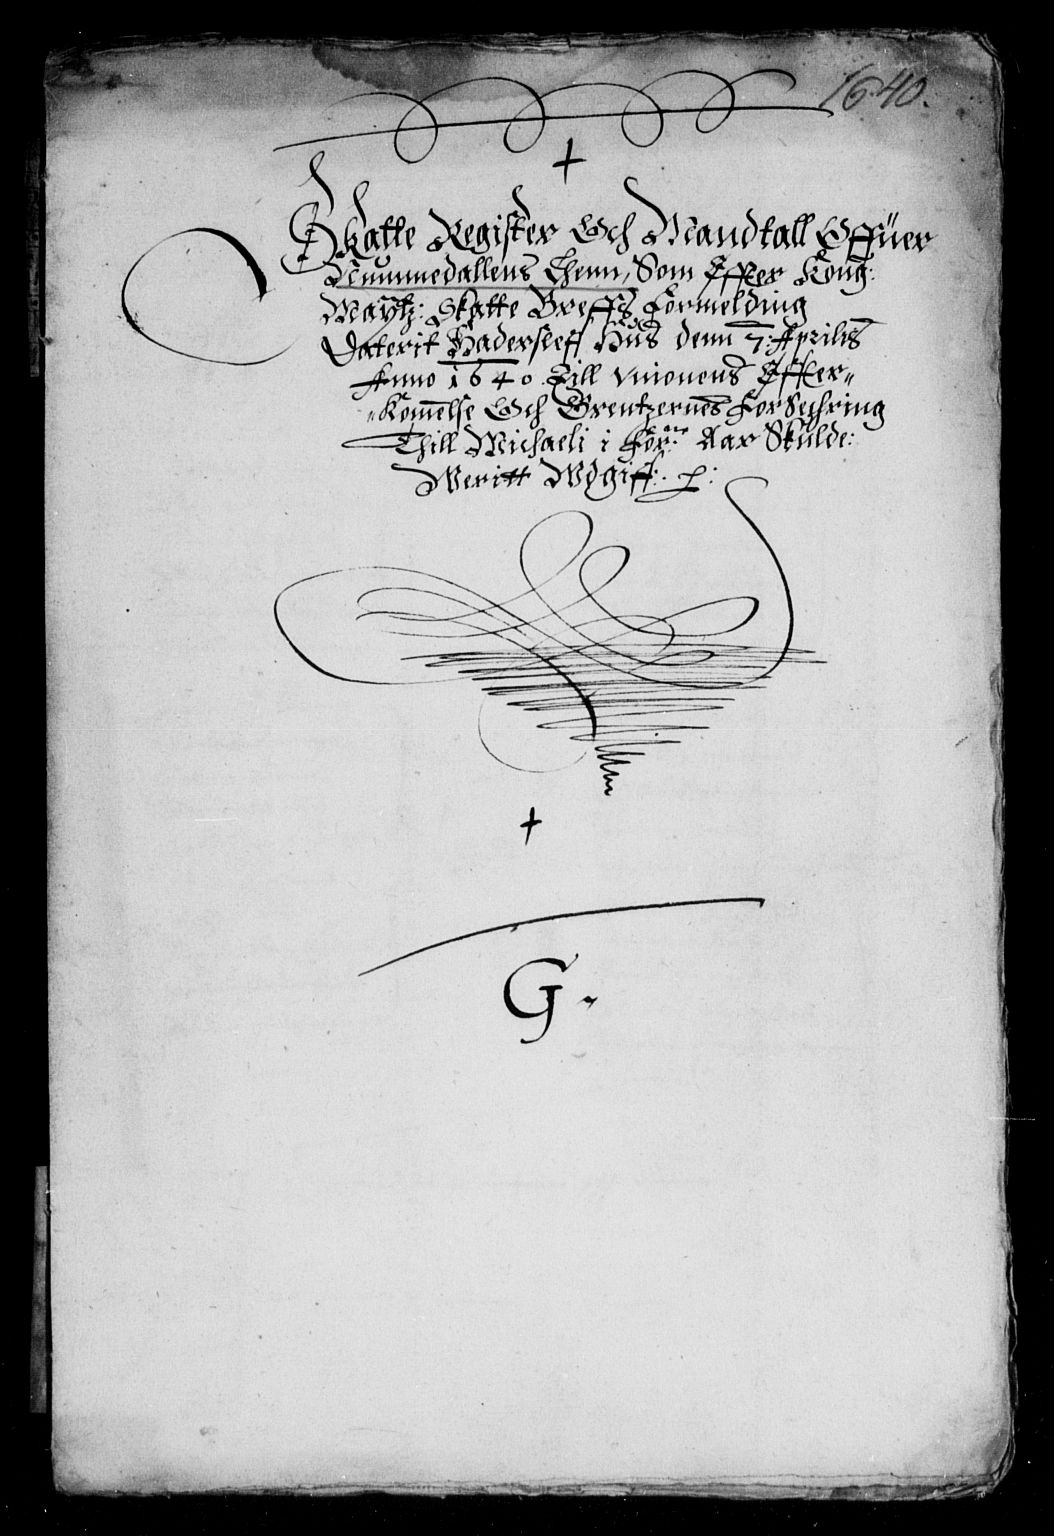 1640.
Skatte Register Och Mandtall Offuer
Nummedallens Lhenn, Som Effter Kong:
Maytz: Skatte Breffs Formelding
Daterit Hadersleff Hus denn 7 Aprilis
Anno 1640 Till Vnionens Effter-
Komelse Och Grentzernes Forsechring
Thill Michaeli i For:ne Aar Skulde:
Weritt Wdgiff:
G.